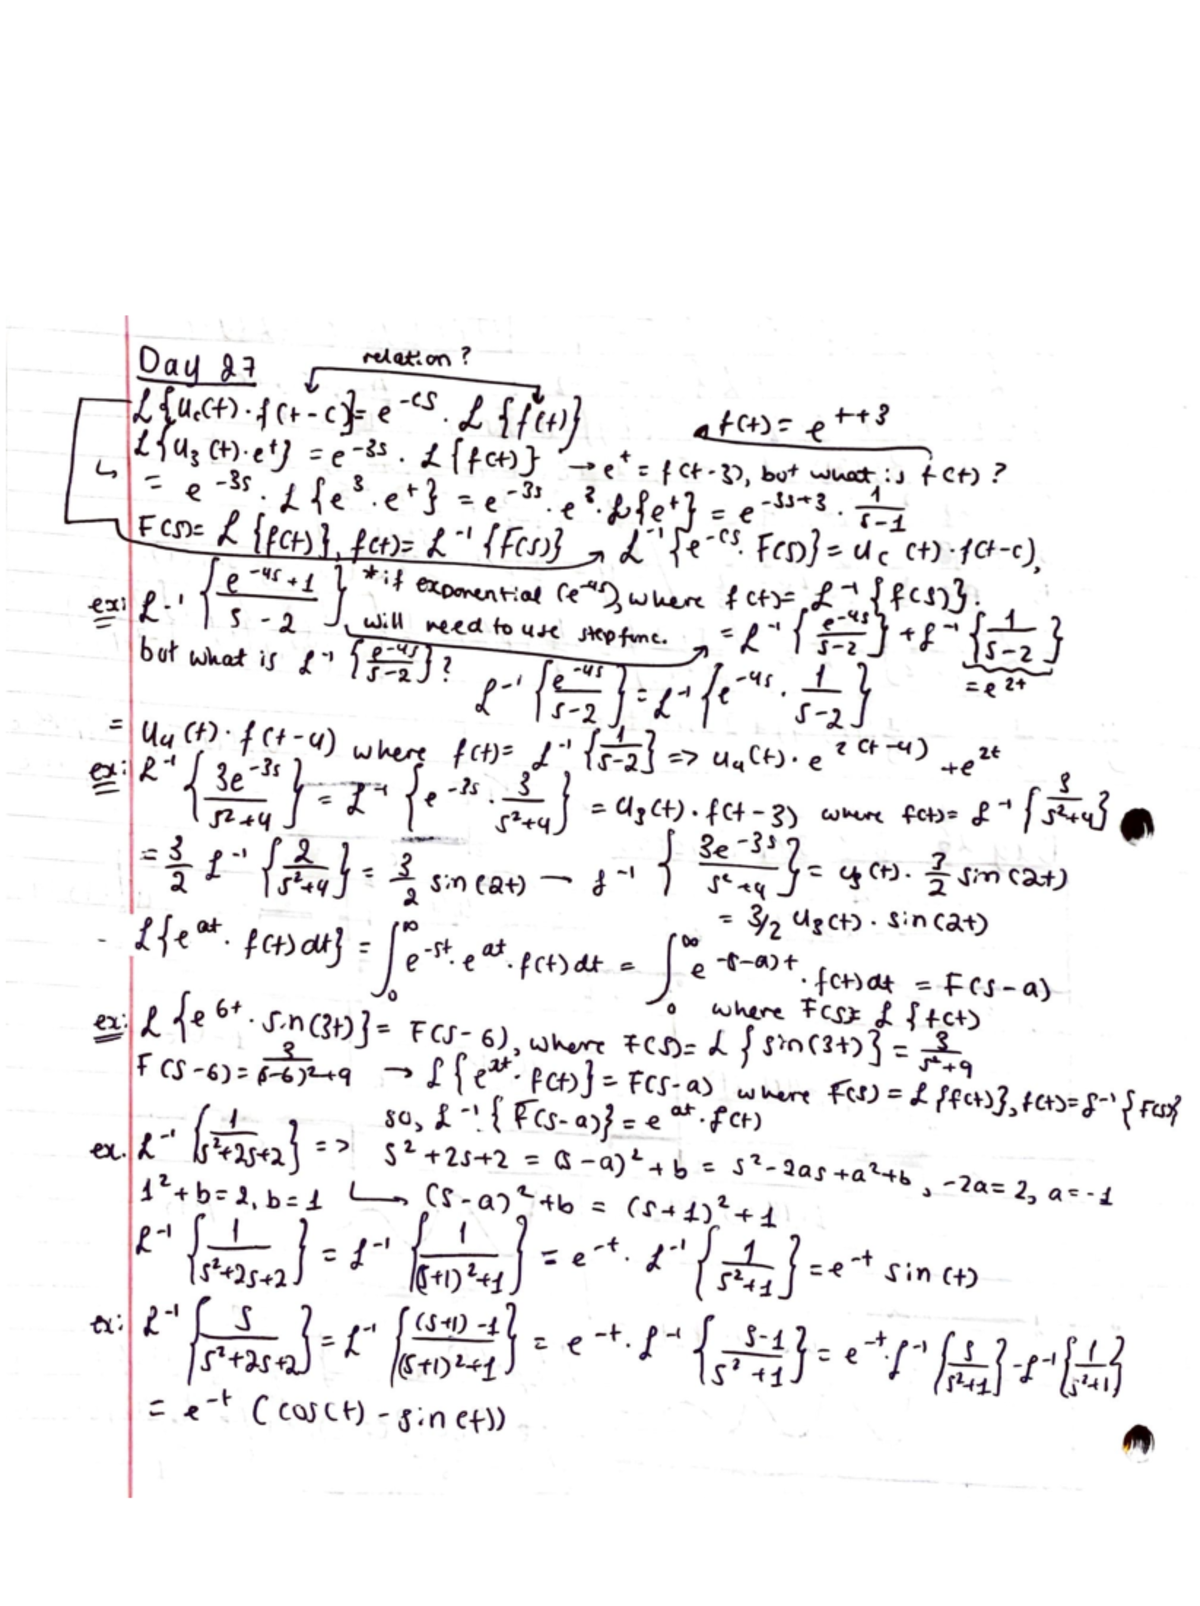 Day 27 relation?
ℒ{u_c(t)·f(t-c)} = e^{-cs} · ℒ{f(t)} f(t) = e^{t+3}
ℒ{u_3(t)·e^t} = e^{-3s} · ℒ{f(t)} → e^t = f(t-3), but what is f(t)?
= e^{-3s} · ℒ{e^3 · e^t} = e^{-3s} · e^3 · ℒ{e^t} = e^{-3s+3} · 1/(s-1)
F(s) = ℒ{f(t)}, f(t) = ℒ^{-1}{F(s)} → ℒ^{-1}{e^{-cs} · F(s)} = u_c(t)·f(t-c),
ex: ℒ^{-1}{(e^{-4s}+1)/(s-2)} *if exponential (e^{-4s}), where f(t) = ℒ^{-1}{f(s)}.
will need to use step func. = ℒ^{-1}{e^{-4s}/(s-2)} + ℒ^{-1}{1/(s-2)}
but what is ℒ^{-1}{e^{-4s}/(s-2)}? ℒ^{-1}{e^{-4s}/(s-2)} = ℒ^{-1}{e^{-4s} · 1/(s-2)} = e^{2t}
= u_4(t)·f(t-4) where f(t) = ℒ^{-1}{1/(s-2)} => u_4(t)·e^{2(t-4)} + e^{2t}
ex: ℒ^{-1}{3e^{-3s}/(s^2+4)} = ℒ^{-1}{e^{-3s} · 3/(s^2+4)} = u_3(t)·f(t-3) where f(t) = ℒ^{-1}{3/(s^2+4)}
= 3/2 ℒ^{-1}{2/(s^2+4)} = 3/2 sin(2t) — ℒ^{-1}{3e^{-3s}/(s^2+4)} = u_3(t)·3/2 sin(2t)
= 3/2 u_3(t)·sin(2t)
- ℒ{e^{at}·f(t)dt} = ∫_0^∞ e^{-st}·e^{at}·f(t)dt = ∫_0^∞ e^{-(s-a)t}·f(t)dt = F(s-a)
where F(s) = ℒ{f(t)
ex: ℒ{e^{6t}·sin(3t)} = F(s-6), where F(s) = ℒ{sin(3t)} = 3/(s^2+9)
F(s-6) = 3/((s-6)^2+9) → ℒ{e^{at}·f(t)} = F(s-a) where F(s) = ℒ{f(t)}, f(t) = ℒ^{-1}{F(s)}
so, ℒ^{-1}{F(s-a)} = e^{at}·f(t)
ex. ℒ^{-1}{1/(s^2+2s+2)} => s^2+2s+2 = (s-a)^2+b = s^2-2as+a^2+b, -2a=2, a=-1
1^2+b=2, b=1 → (s-a)^2+b = (s+1)^2+1
ℒ^{-1}{1/(s^2+2s+2)} = ℒ^{-1}{1/((s+1)^2+1)} = e^{-t} · ℒ^{-1}{1/(s^2+1)} = e^{-t} sin(t)
ex: ℒ^{-1}{s/(s^2+2s+2)} = ℒ^{-1}{((s+1)-1)/((s+1)^2+1)} = e^{-t} · ℒ^{-1}{(s-1)/(s^2+1)} = e^{-t}·ℒ^{-1}{s/(s^2+1)} - ℒ^{-1}{1/(s^2+1)}
= e^{-t}(cos(t) - sin(t))